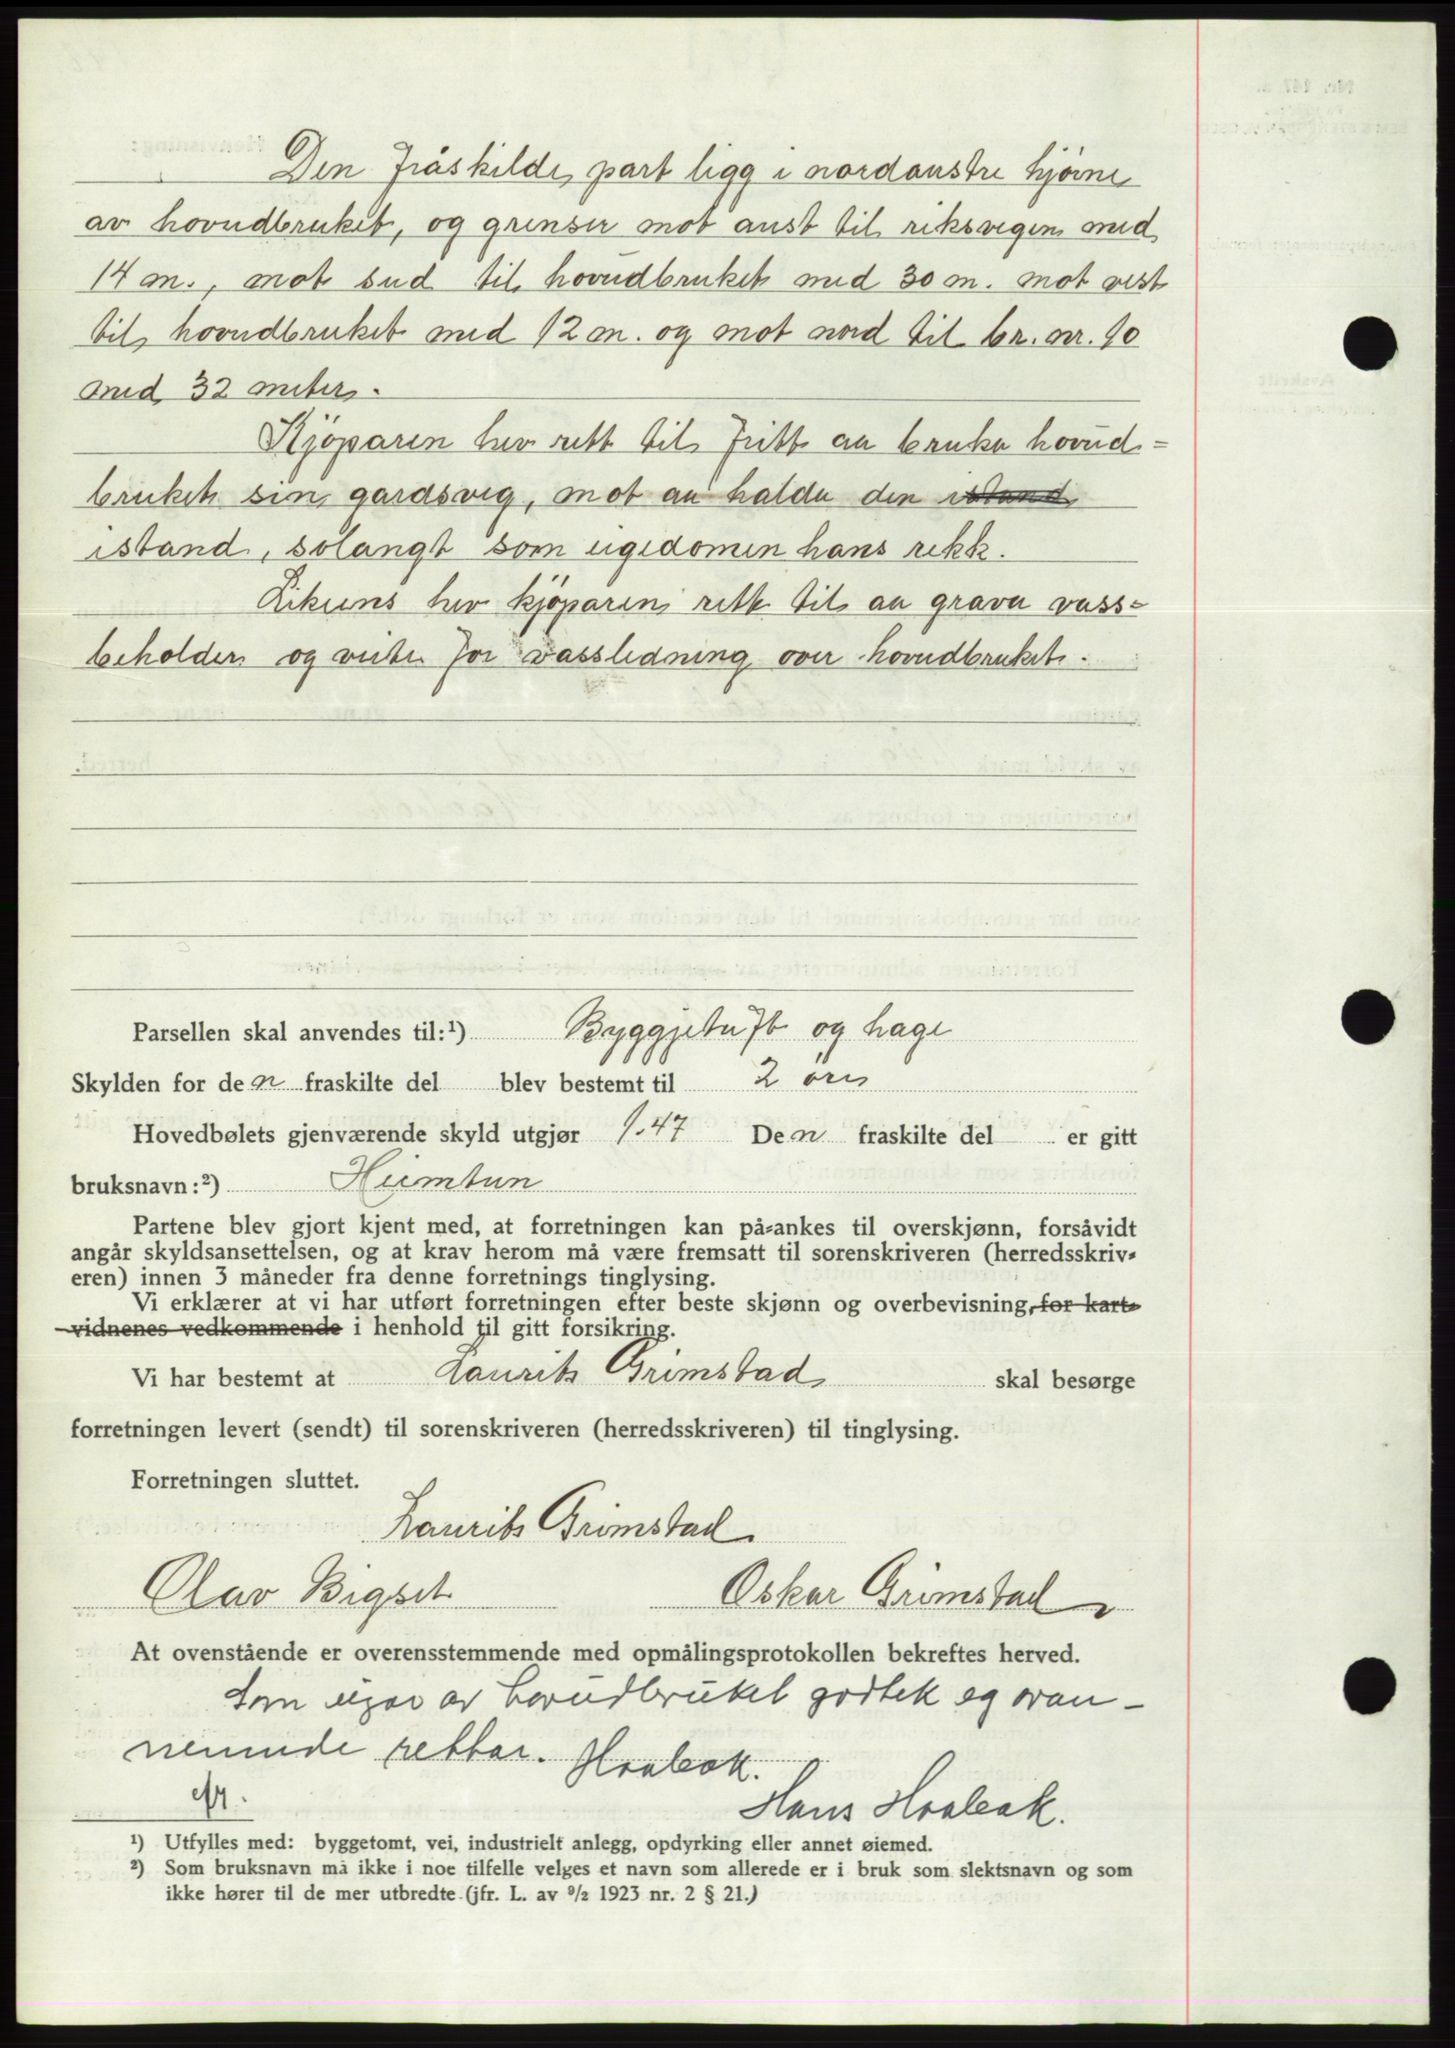 Den fråskilde part ligg i nordaustre hjörne
av hovudbruket, og grenser mot aust til riksvegen med
14 m., mot sud til hovudbruket med 30 m. mot vest
til hovudbruket med 12 m. og mot nord til br. nr. 90
med 32 meter.
Kjöparen hev rett til fritt aa bruka hovud-
bruket sin gardsveg, mot aa halda den istand
istand, solangt som eigedomen hans rekk.
Likeens hev kjöparen rett til aa grava vass-
beholder og veite for vassledning over hovudbruket.
Parsellen skal anvendes til:¹) Byggjetuft og hage
Skylden for den fraskilte del blev bestemt til 2 öre
Hovedbølets gjenværende skyld utgjør 1.47 Den fraskilte del er gitt
bruksnavn:²) Heimtun
Partene blev gjort kjent med, at forretningen kan på-ankes til overskjønn, forsåvidt
angår skyldsansettelsen, og at krav herom må være fremsatt til sorenskriveren (herredsskriv-
eren) innen 3 måneder fra denne forretnings tinglysing.
Vi erklærer at vi har utført forretningen efter beste skjønn og overbevisning, for kart-
vidnenes vedkommende i henhold til gitt forsikring.
Vi har bestemt at Laurits Grimstad skal besørge
forretningen levert (sendt) til sorenskriveren (herredsskriveren) til tinglysing.
Forretningen sluttet.
Laurits Grimstad
Olav Bigset Oskar Grimstad
At ovenstående er overensstemmende med opmålingsprotokollen bekreftes herved.
Som eigar av hovudbruket godtek eg ovan-
nemnde rettar. Haabak.
Hans Haabak.
¹) Utfylles med: byggetomt, vei, industrielt anlegg, opdyrking eller annet øiemed.
²) Som bruksnavn må ikke i noe tilfelle velges et navn som allerede er i bruk som slektsnavn og som
ikke hører til de mer utbredte (jfr. L. av ⁹/₂ 1923 nr. 2 § 21.)